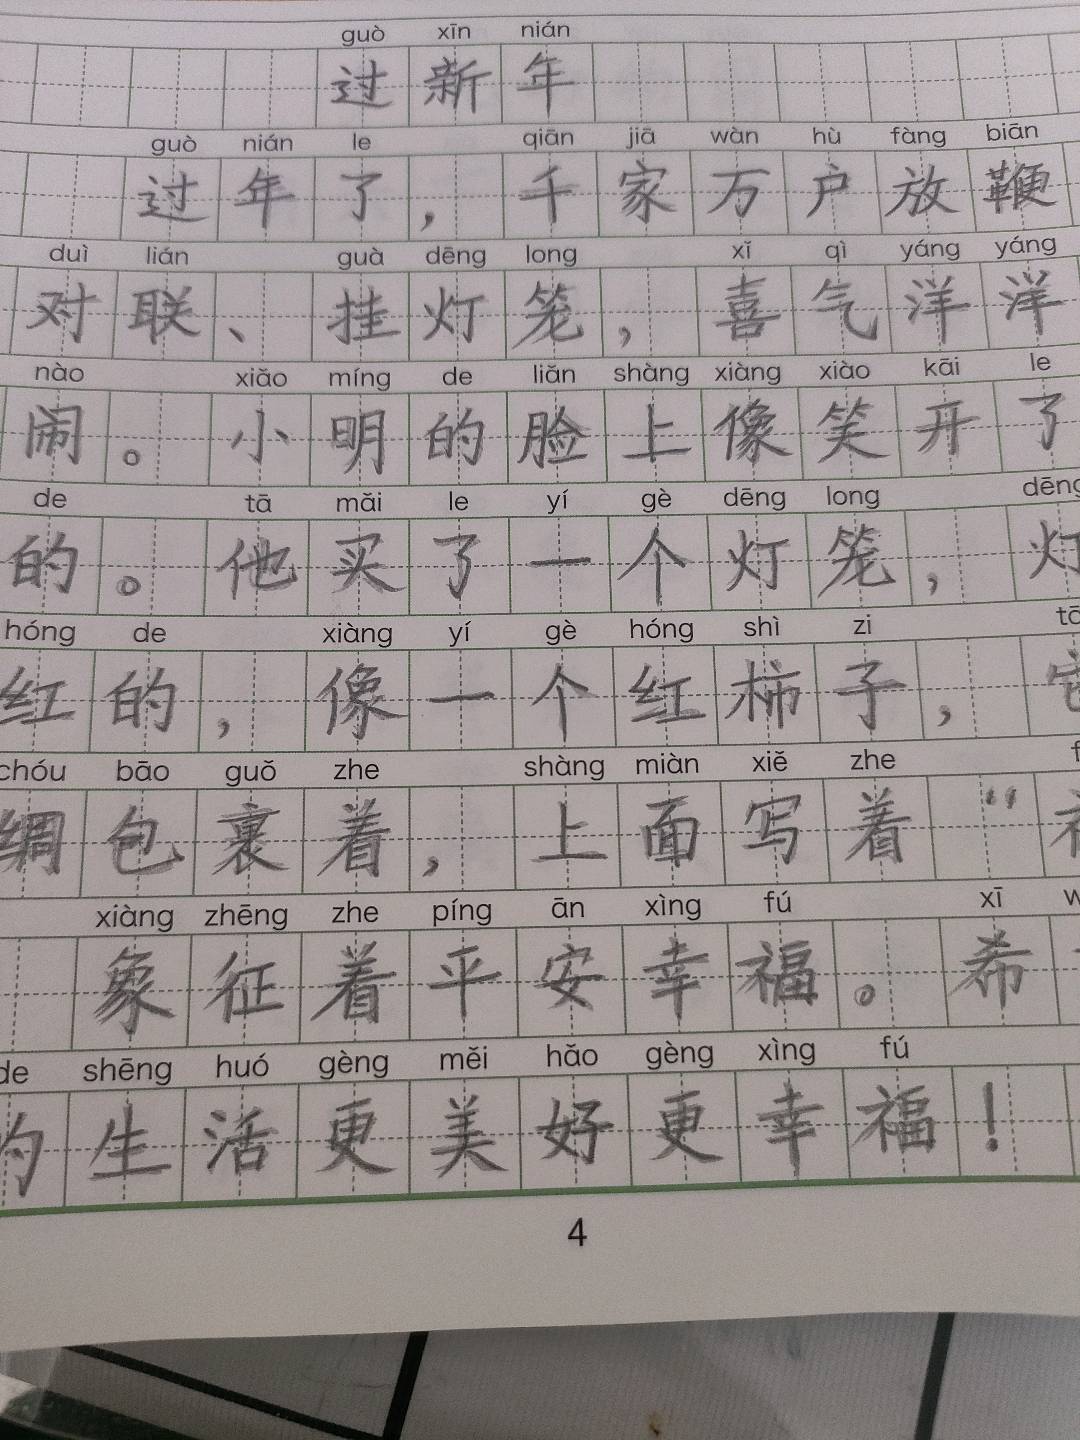 guò xīn nián
过新年
guò nián le qiān jiā wàn hù fàng biān
过年了，千家万户放鞭
duì lián guà dēng long xǐ qì yáng yáng
对联、挂灯笼，喜气洋洋
nào xiǎo míng de liǎn shàng xiàng xiào kāi le
闹。小明的脸上像笑开了
de tā mǎi le yí gè dēng long dēng
的。他买了一个灯笼，灯
hóng de xiàng yí gè hóng shì zi
红的，像一个红柿子，
chóu bāo guǒ zhe shàng miàn xiě zhe
绸包裹着，上面写着“
xiàng zhēng zhe píng ān xìng fú xī
象征着平安幸福。希
de shēng huó gèng měi hǎo gèng xìng fú
的生活更美好更幸福！
4